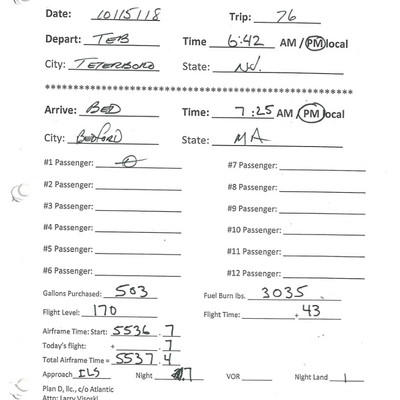 Date: 10/15/18 Trip: 76
Depart: TEB Time 6:42 AM / PM local
City: TETERBORO State: NJ.
*****************************************************
Arrive: BED Time: 7:25 AM / PM local
City: BEDFORD State: MA
#1 Passenger: 0 #7 Passenger:
#2 Passenger: #8 Passenger:
#3 Passenger: #9 Passenger:
#4 Passenger: #10 Passenger:
#5 Passenger: #11 Passenger:
#6 Passenger: #12 Passenger:
Gallons Purchased: 503 Fuel Burn lbs. 3035
Flight Level: 170 Flight Time: .43
Airframe Time: Start: 5536.7
Today's flight: + .7
Total Airframe Time = 5537.4
Approach ILS Night .7 VOR Night Land 1
Plan D, llc., c/o Atlantic
Attn: Larry Visoski